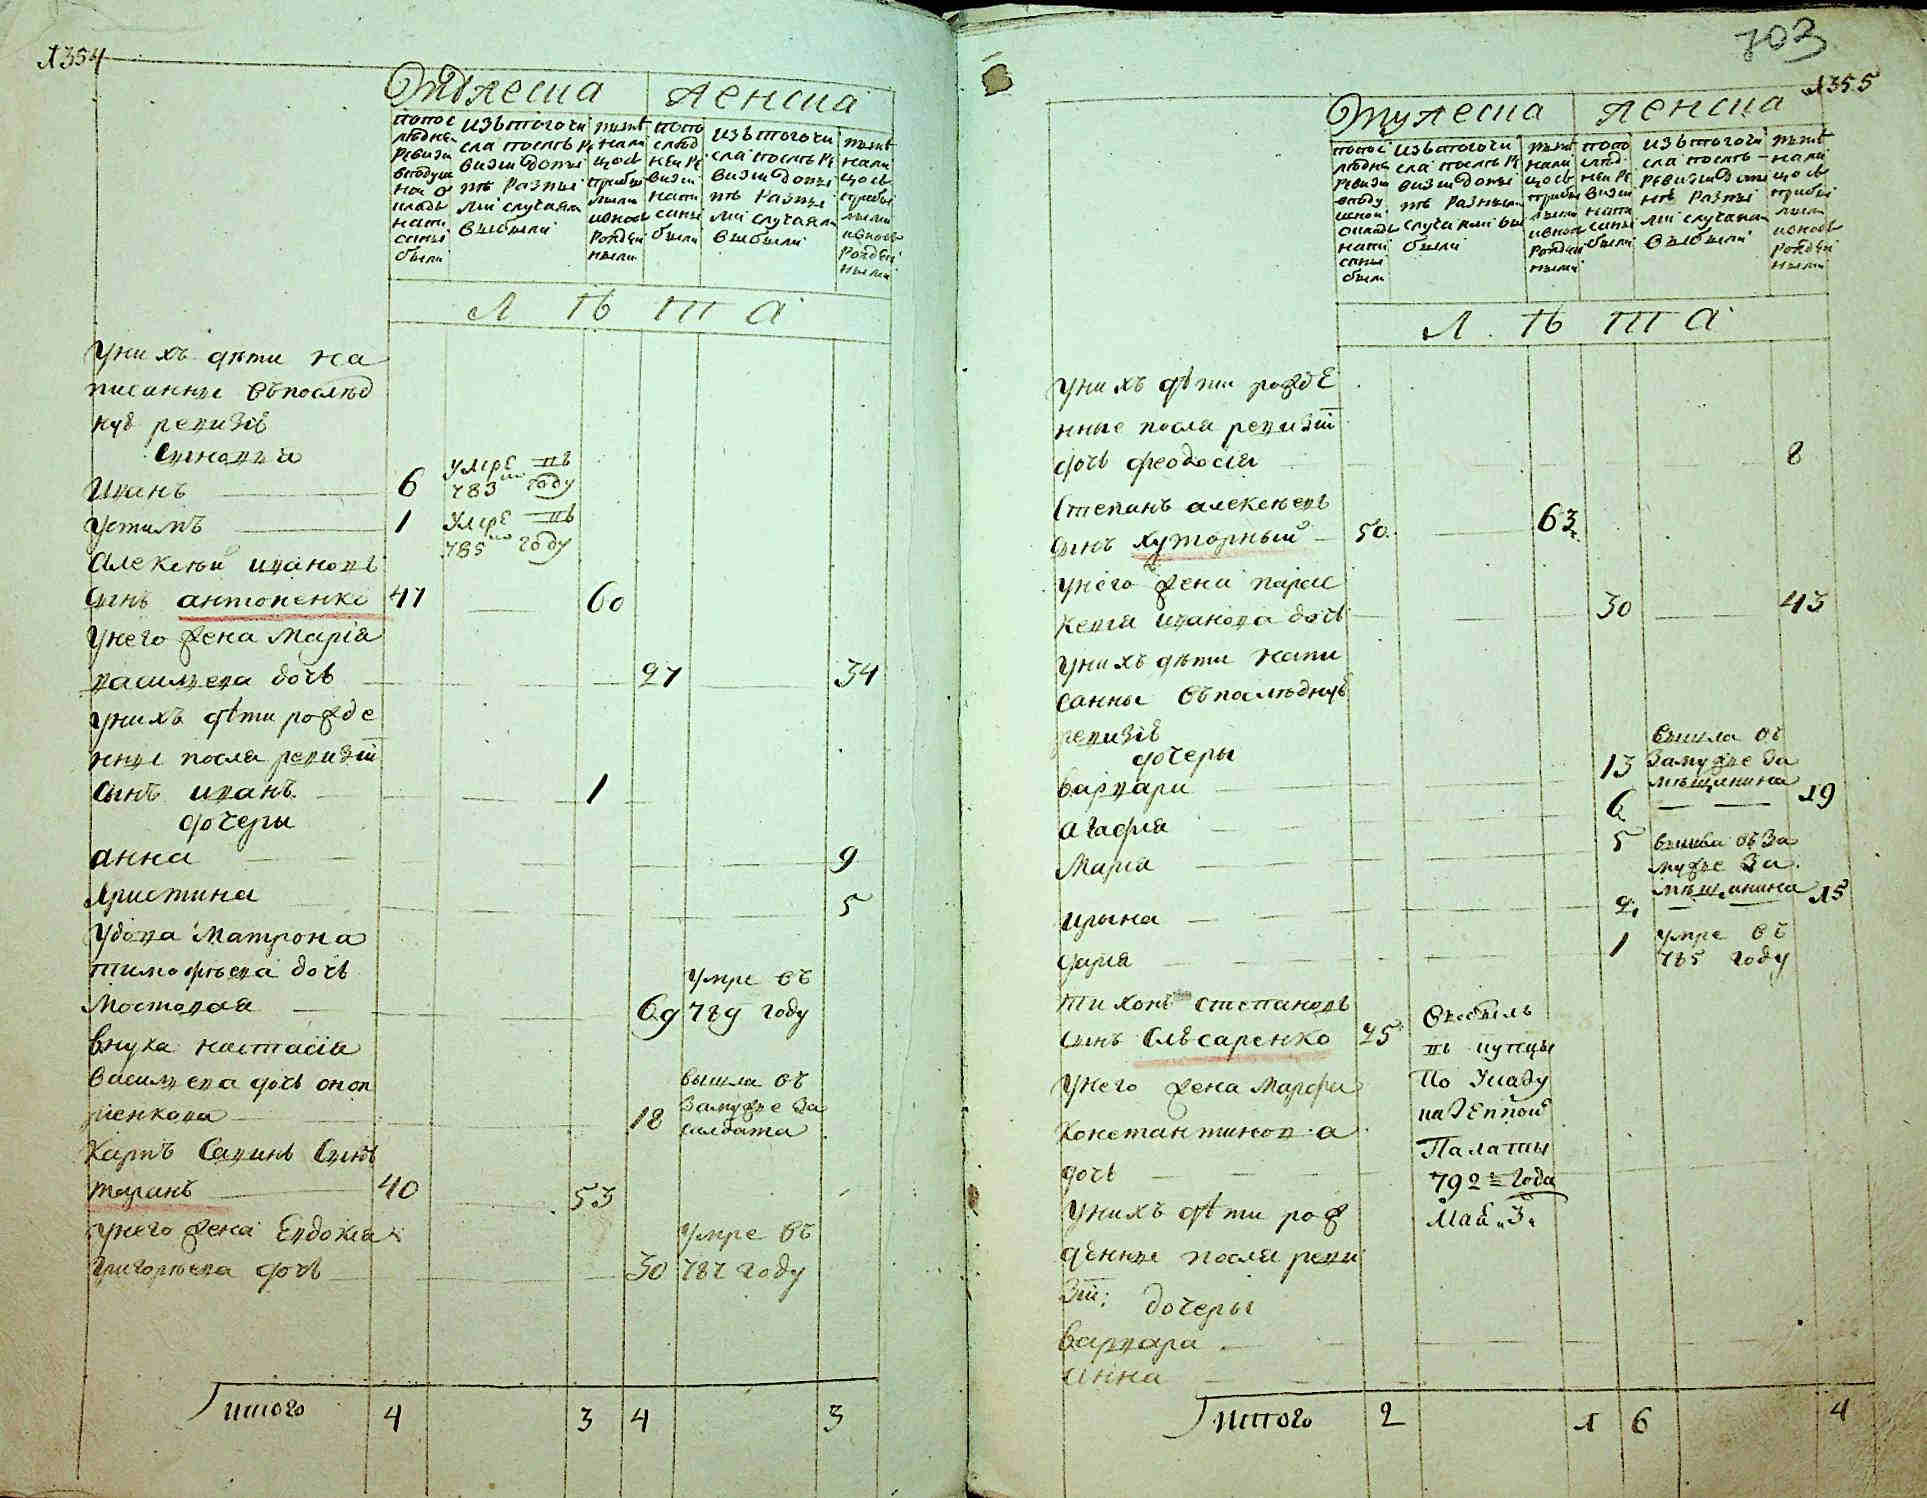 1354
Мужеска женска
попос
лѣдне
ревизи
вподуш
ной о
кладе
напи
саны
были
изътогочи
сла послѣ ре
визии допы
тѣ разны
ми случаями
выбыли
нынѣ
нали
цо съ
прибы
лыми
ивновь
рожден
ными
попо
слѣд
ней ре
визии
напи
саны
были
изътогочи
сла послѣ ре
визии допы
тѣ разны
ми случаями
выбыли
нынѣ
нали
цо съ
прибы
лыми
ивновь
рожден
ными
Л Ѣ Т А
унихъ дѣти на
писанные въпослѣд
ную ревизію
Сыновья
Иванъ 6 умре въ
783мъ году
Устимъ 1 Умре въ
785мъ году
Алексѣй ивановъ
сынъ антопенко 47 60
Унего жена Марія
васильева дочь 27 34
унихъ дѣти рожде
нные посля ревизіи
сынъ иванъ 1
дочеры
анна 9
Христина 5
Удова Матрона
тимофѣева дочь
Мостовая 69 умре въ
789 году
внука настасія
васильева дочь
18 вышла въ
замужже за
салдата
Карпъ Савинъ Сынъ
таранъ 40 53
унего жена Евдокія
григорьева дочь 30 умре въ
787 году
Итого 4 3 4 3
703
1355
Мужеска женска
попос
лѣдне
ревизи
вподу
шной
окладе
напи
саны
были
изътогочи
сла послѣ ре
визии допы
тѣ разными
случаями вы
были
нынѣ
нали
цо съ
прибы
лыми
ивновь
рожден
ными
попо
слѣд
ней ре
визии
напи
саны
были
изътогочи
сла послѣ
ревизии допы
нѣ разны
ми случаями
выбыли
нынѣ
нали
цо съ
прибы
лыми
ивновь
рожден
ными
Л Ѣ Т А
унихъ дѣти рожде
нные посля ревизіи
дочь феодосія 8
Степанъ алексѣевъ
сынъ хуторный 50 63
унего жена парас
кевия иванова дочь 30 43
унихъ дѣти напи
санны въпослѣдную
ревизію
дочеры
варвара 13 вышла въ
замужже за
мѣщанина
агафия 6 19
Мария 5 вышла въ за
мужже за
мѣщанина
ирына 2 15
дария 1 умре въ
785 году
тихонъ степановъ
сынъ Слѣсаренко 25 Выбылъ
въ купцы
По Указу
казенной
Палаты
792 года
Маія 3
Унего жена Марфа
Константинова
дочь
Унихъ дѣти рож
денные посля реви
зіи: дочеры
варвара
анна
Итого 2 1 6 4